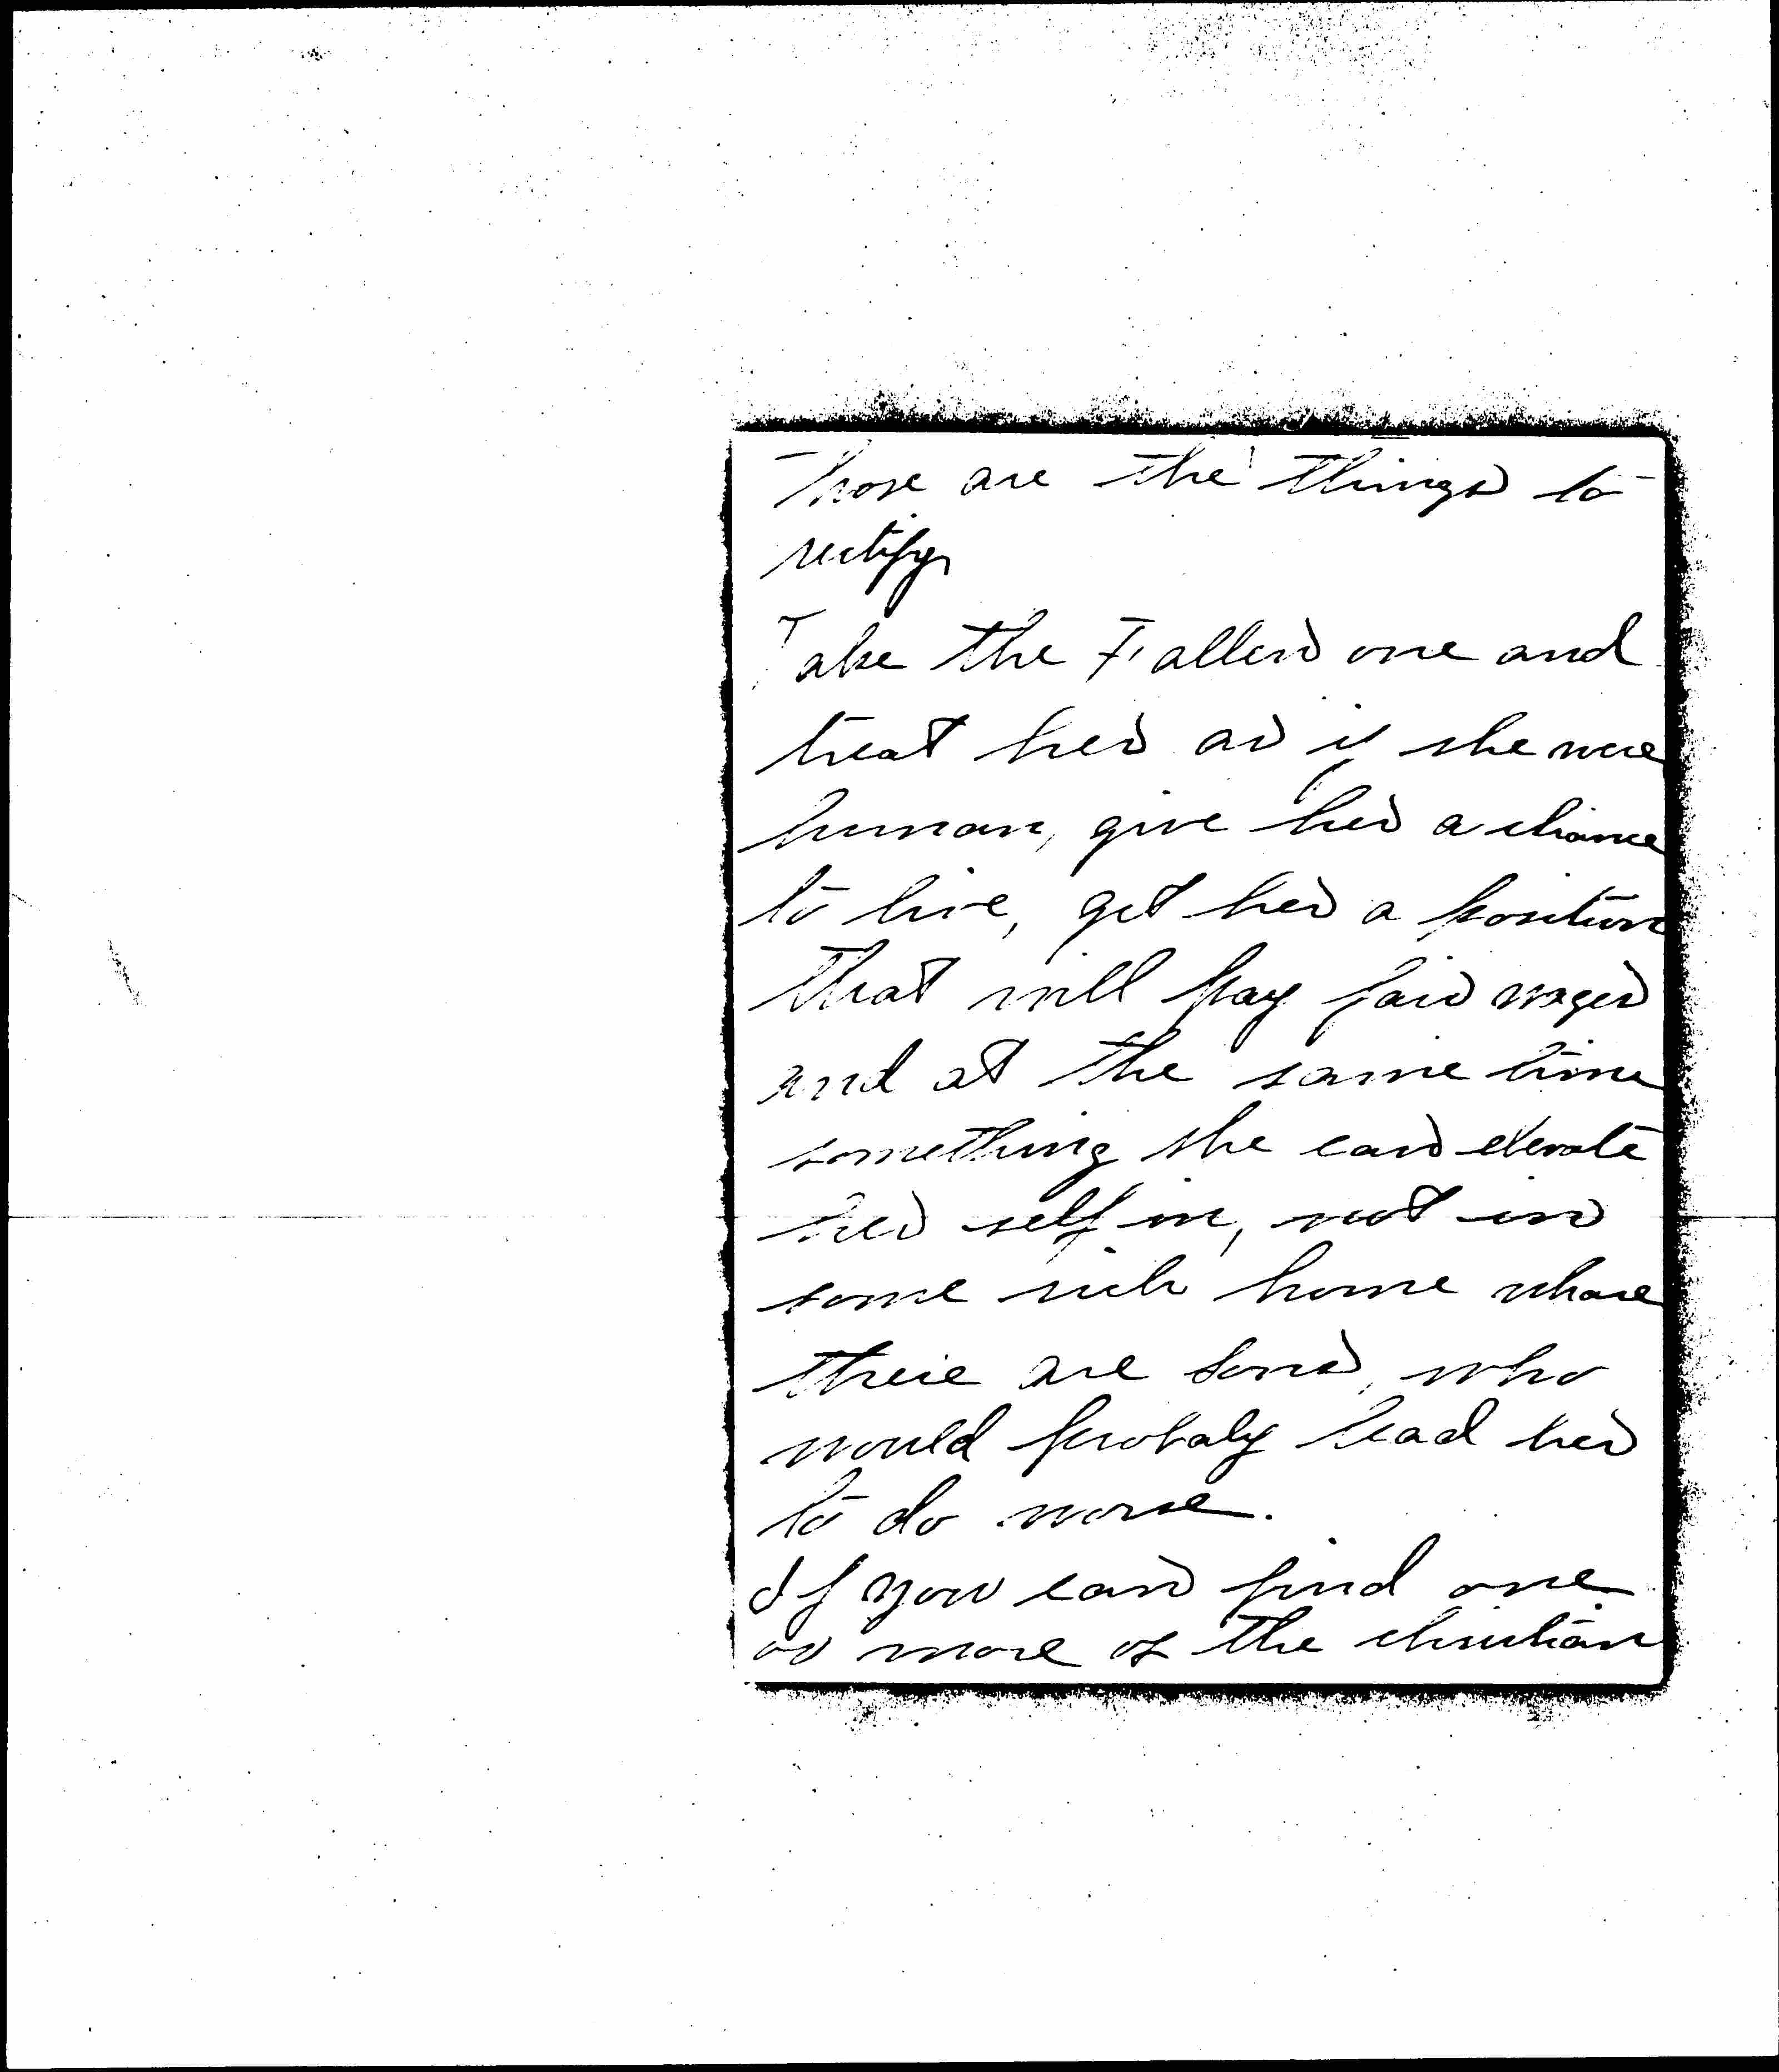 Those are the things to
rectify
Take the Fallen one and
treat her as if she were
human, give her a chance
to live, get her a position
that will pay fair wages
and at the same time
something she can elevate
her self in, not in
some rich home whare
there are sons, who
would probaly lead her
to do worse.
If you can find one
or more of the christian